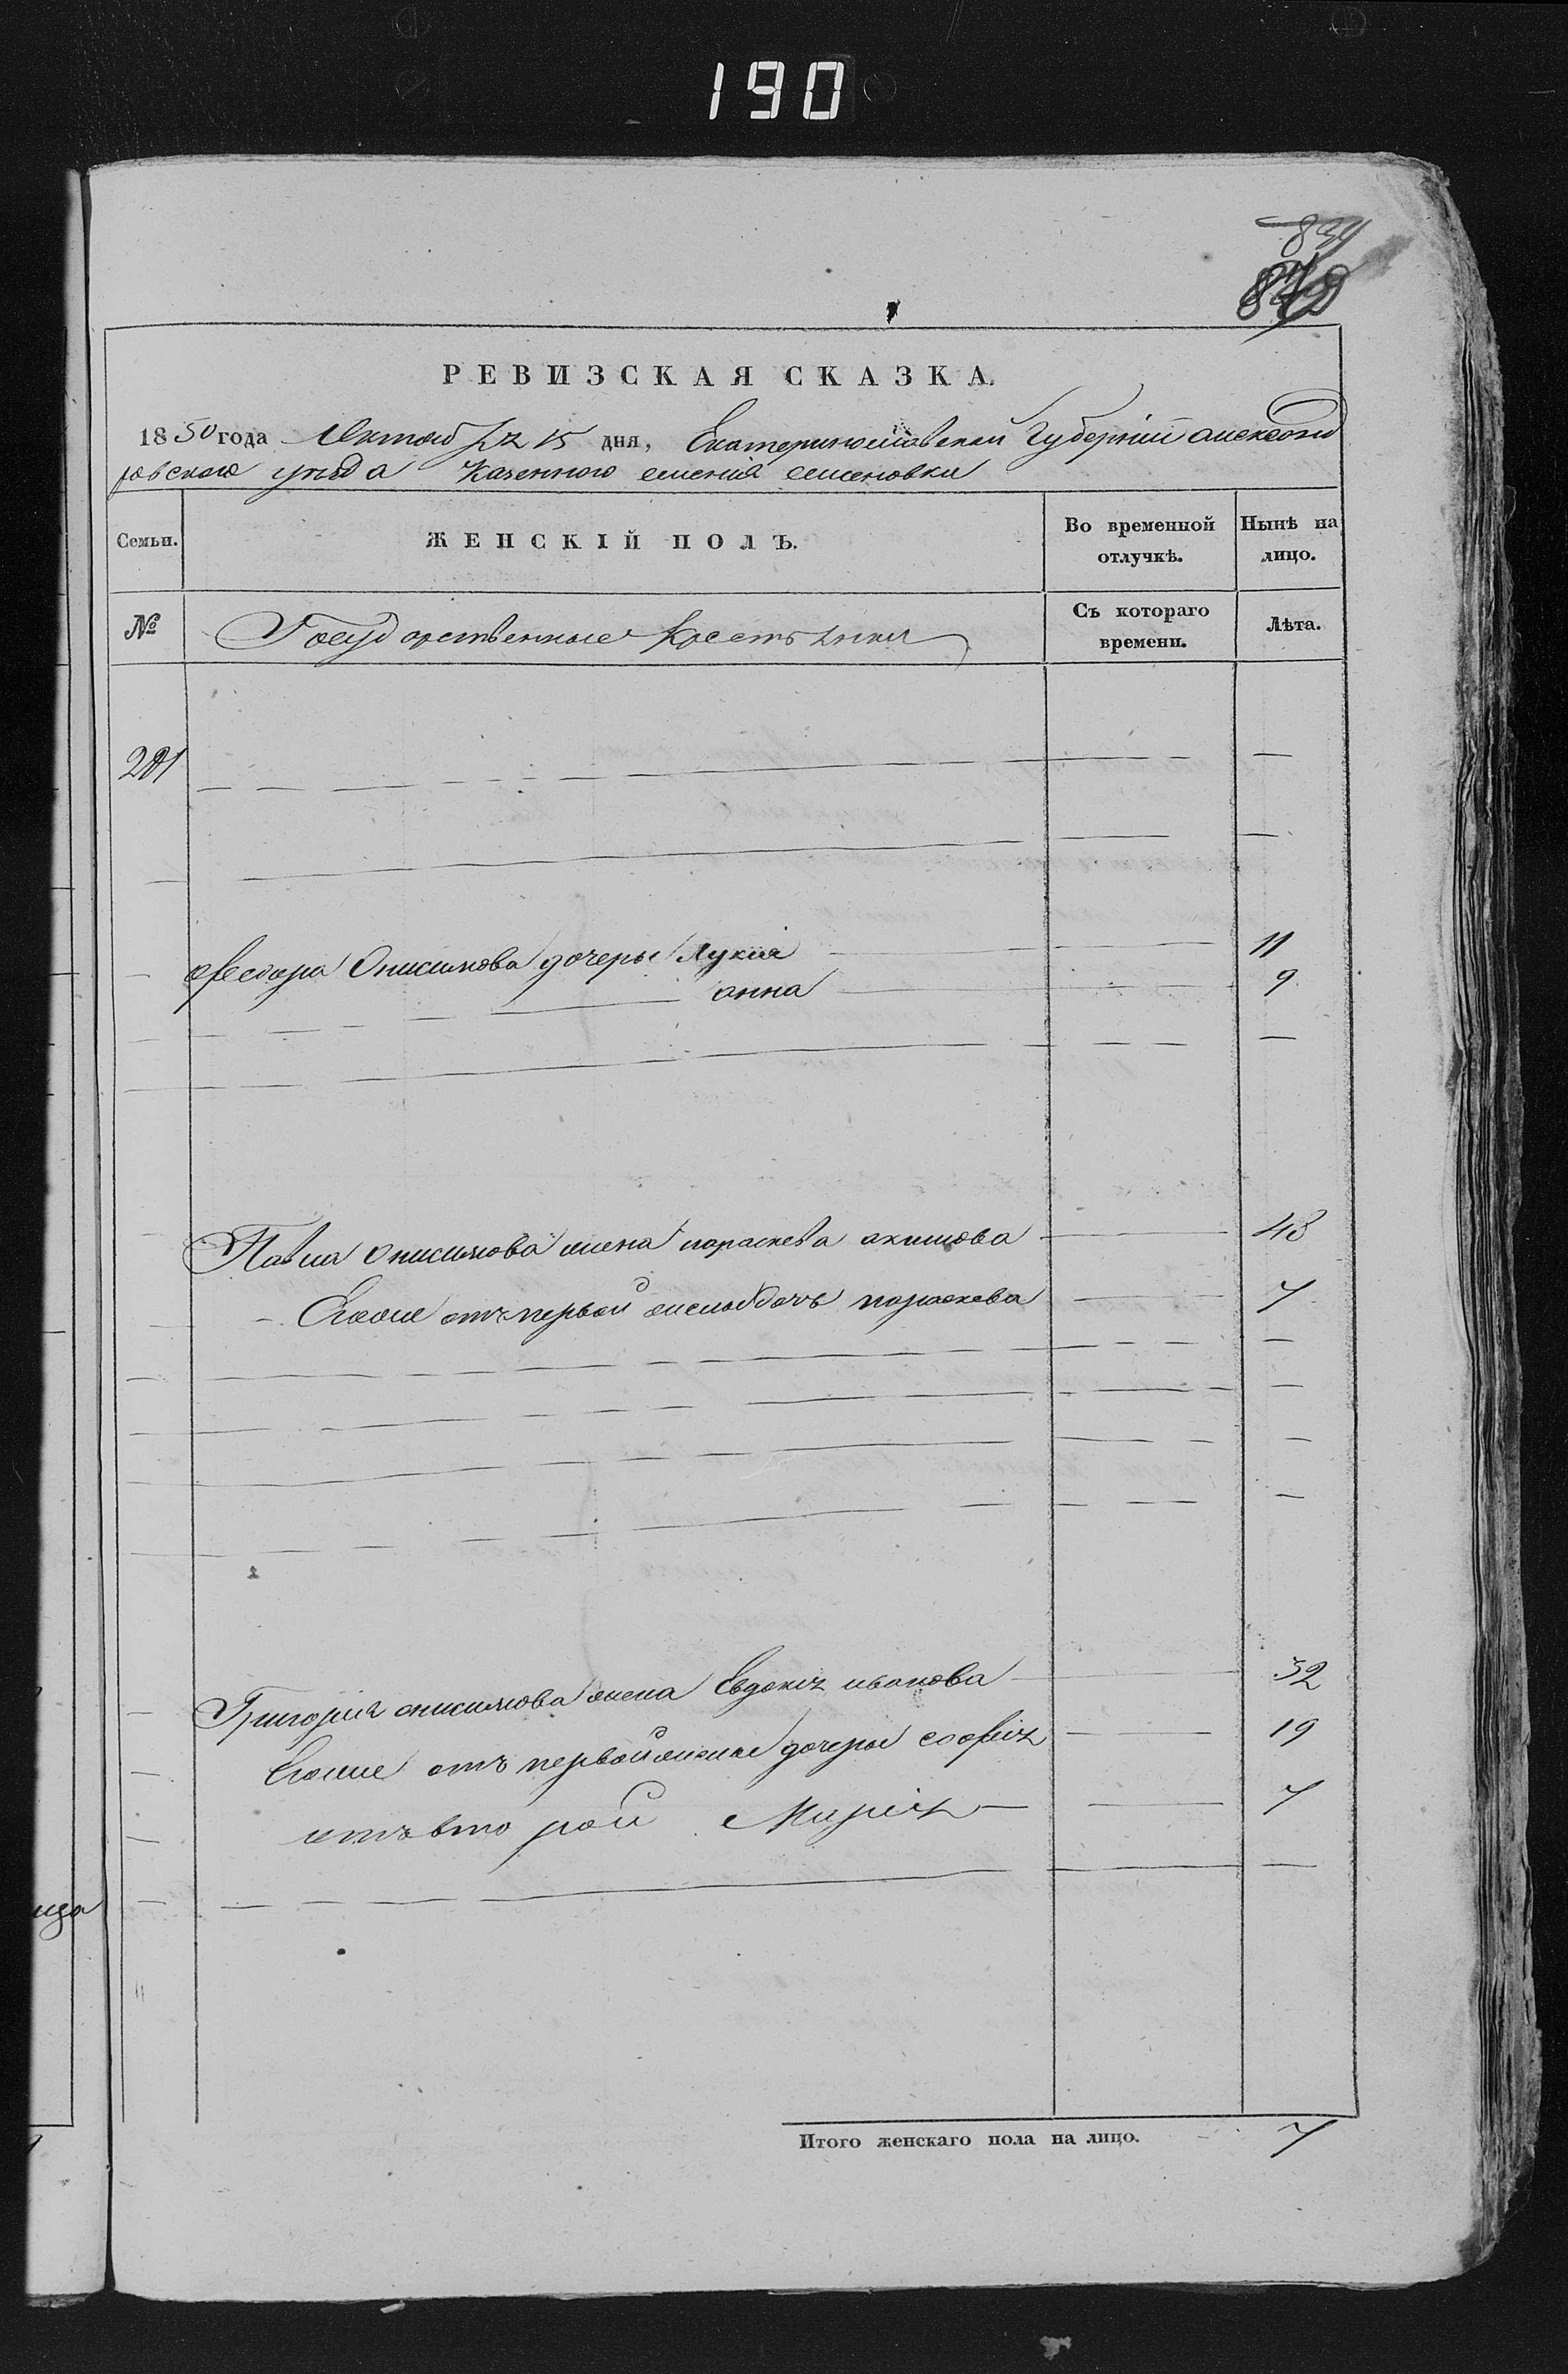 190
839
РЕВИЗСКАЯ СКАЗКА.
1850 года Октября 15 дня, Екатеринославской Губерніи александ
ровского уезда Казенного селенія семеновки
Семьи.
ЖЕНСКІЙ ПОЛЪ.
Во временной отлучкѣ.
Нынѣ на лицо.
№
Государственные Крестьяни
Съ котораго времени.
Лѣта.
201
Феодора Онисимова дочеры Лукия 11
анна 9
Павла Онисимова жена параскева акимова 48
Егоже отъ первой жены дочь параскева 7
Григория онисимова жена Евдокія иванова 32
Егоже отъ первой жены дочеры софія 19
отъ второй Марія 7
Итого женскаго пола на лицо. 7